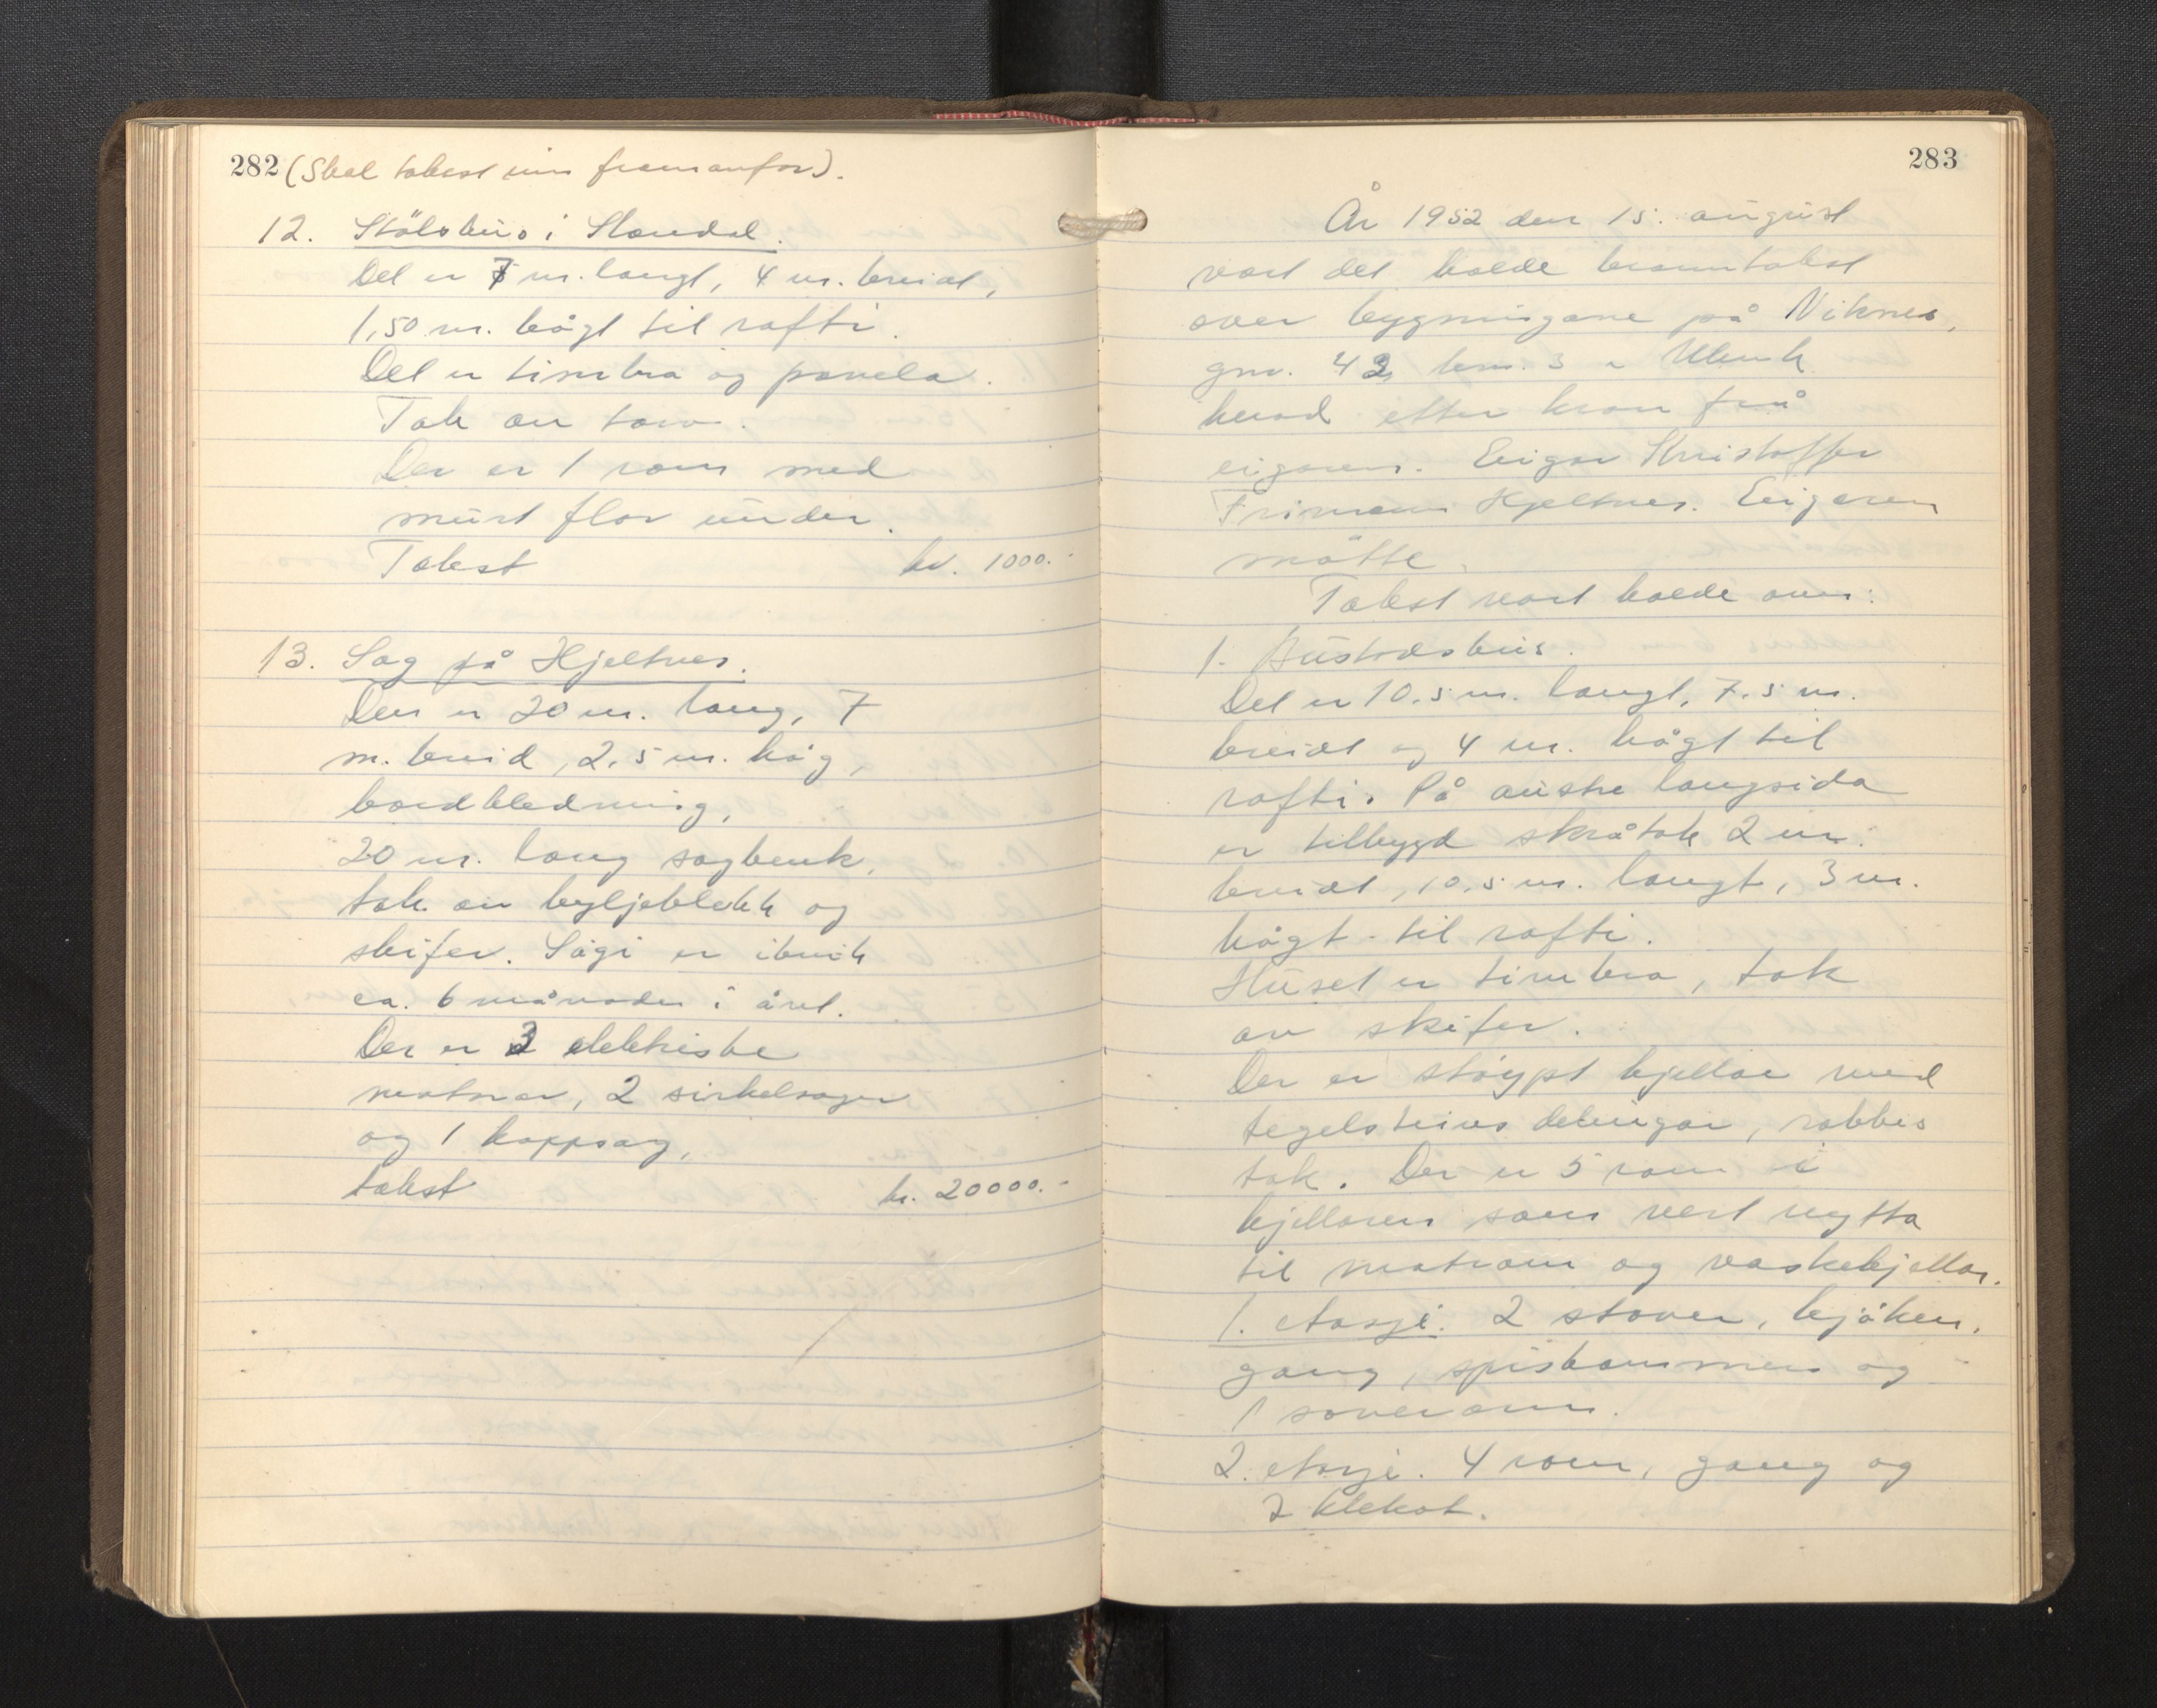 282 (Skal takast inn framanfor).
12. Stölshus i Skardal.
Det er 7 m. langt, 4 m. breidt,
1,50 m. högt til rafti.
Det er timbra og panela.
Tak av torv.
Der er 1 rom med
murt flor under.
Takst kr. 1000.-
13. Sag på Hjeltnes.
Den er 20 m. lang, 7
m. breid, 2,5 m. hög,
bordkledning,
20 m. lang sagbenk,
tak av bylgjeblekk og
skifer. Sagi er ibruk
ca. 6 månader i året.
Der er 3 elektriske
motorar, 2 sirkelsager
og 1 kappsag,
takst kr. 20000.-
283
År 1952 den 15. august
vart det halde branntakst
over bygningane på Viknes,
gnr. 42 bnr. 3 i Ulvik
herad etter krav frå
eigaren. Eigar Kristoffer
Frimann Hjeltnes. Eigaren
mötte.
Takst vart halde over:
1. Bustadshus.
Det er 10.5 m. langt, 7.5 m.
breidt og 4 m. högt til
rafti. På austre langsida
er tilbygd skråtak 2 m.
breidt, 10.5 m. langt, 3 m.
högt til rafti.
Huset er timbra, tak
av skifer.
Der er stöypt kjellar med
tegelsteins delingar, rabbis
tak. Der er 5 rom i
kjellaren som vert nytta
til matrom og vaskekjellar.
1. etasje. 2 stover, kjöken,
gang, spiskammers og
1 soverom.
2. etasje. 4 rom, gang og
2 klekot.